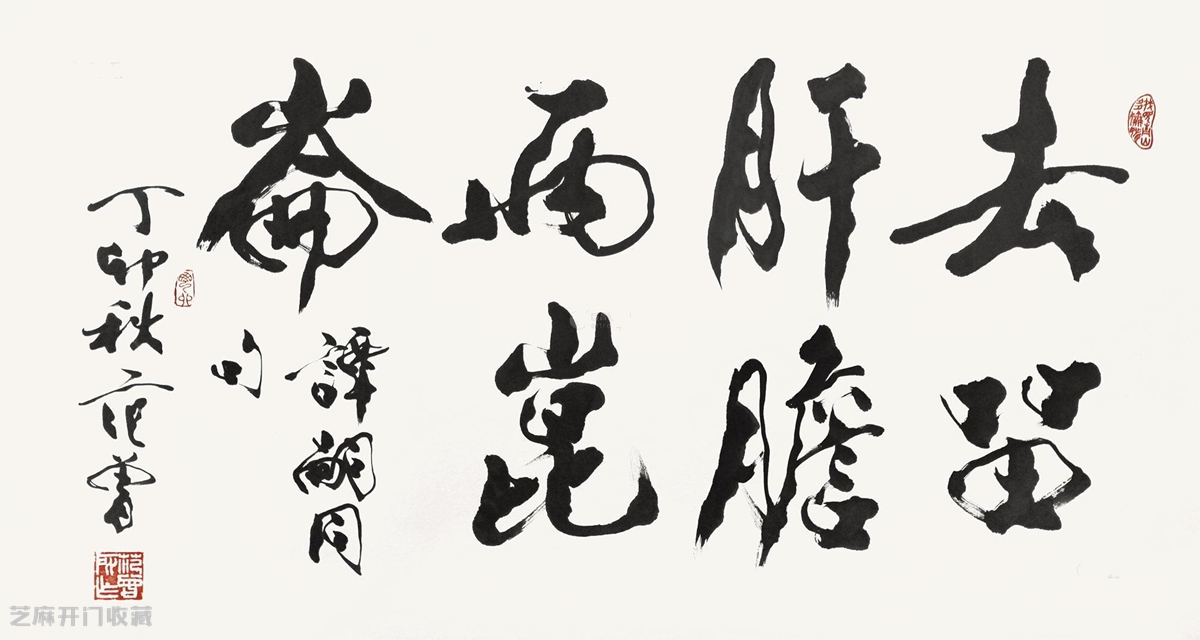 去留
肝膽
兩崑
崙
譚嗣同
句
丁卯秋 范曾
芝麻开门收藏